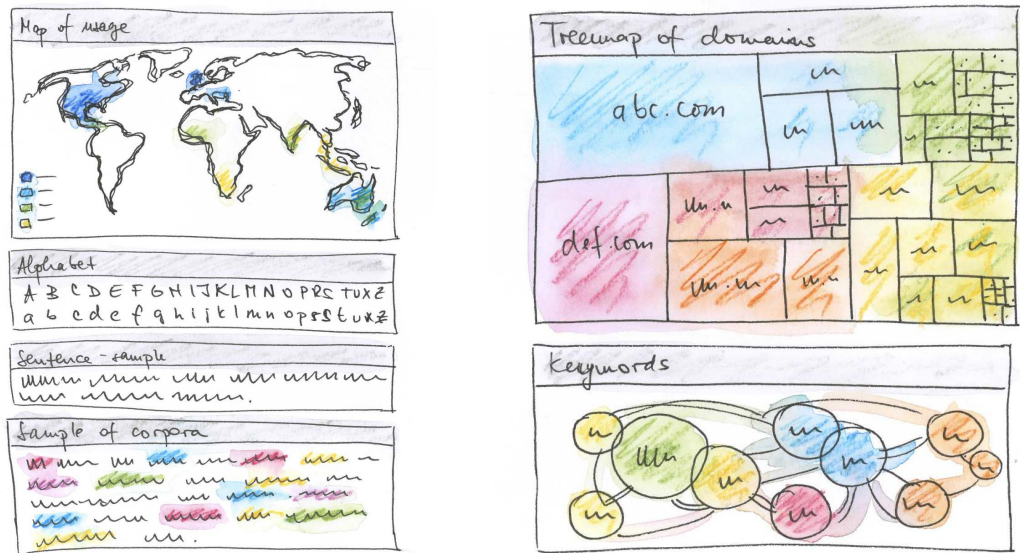 Map of usage
Alphabet
A B C D E F G H I J K L M N O P R S T U X Z
a b c d e f g h i j k l m n o p r s t u x z
Sentence - sample
Sample of corpora
Treemap of domains
abc.com
def.com
Keywords